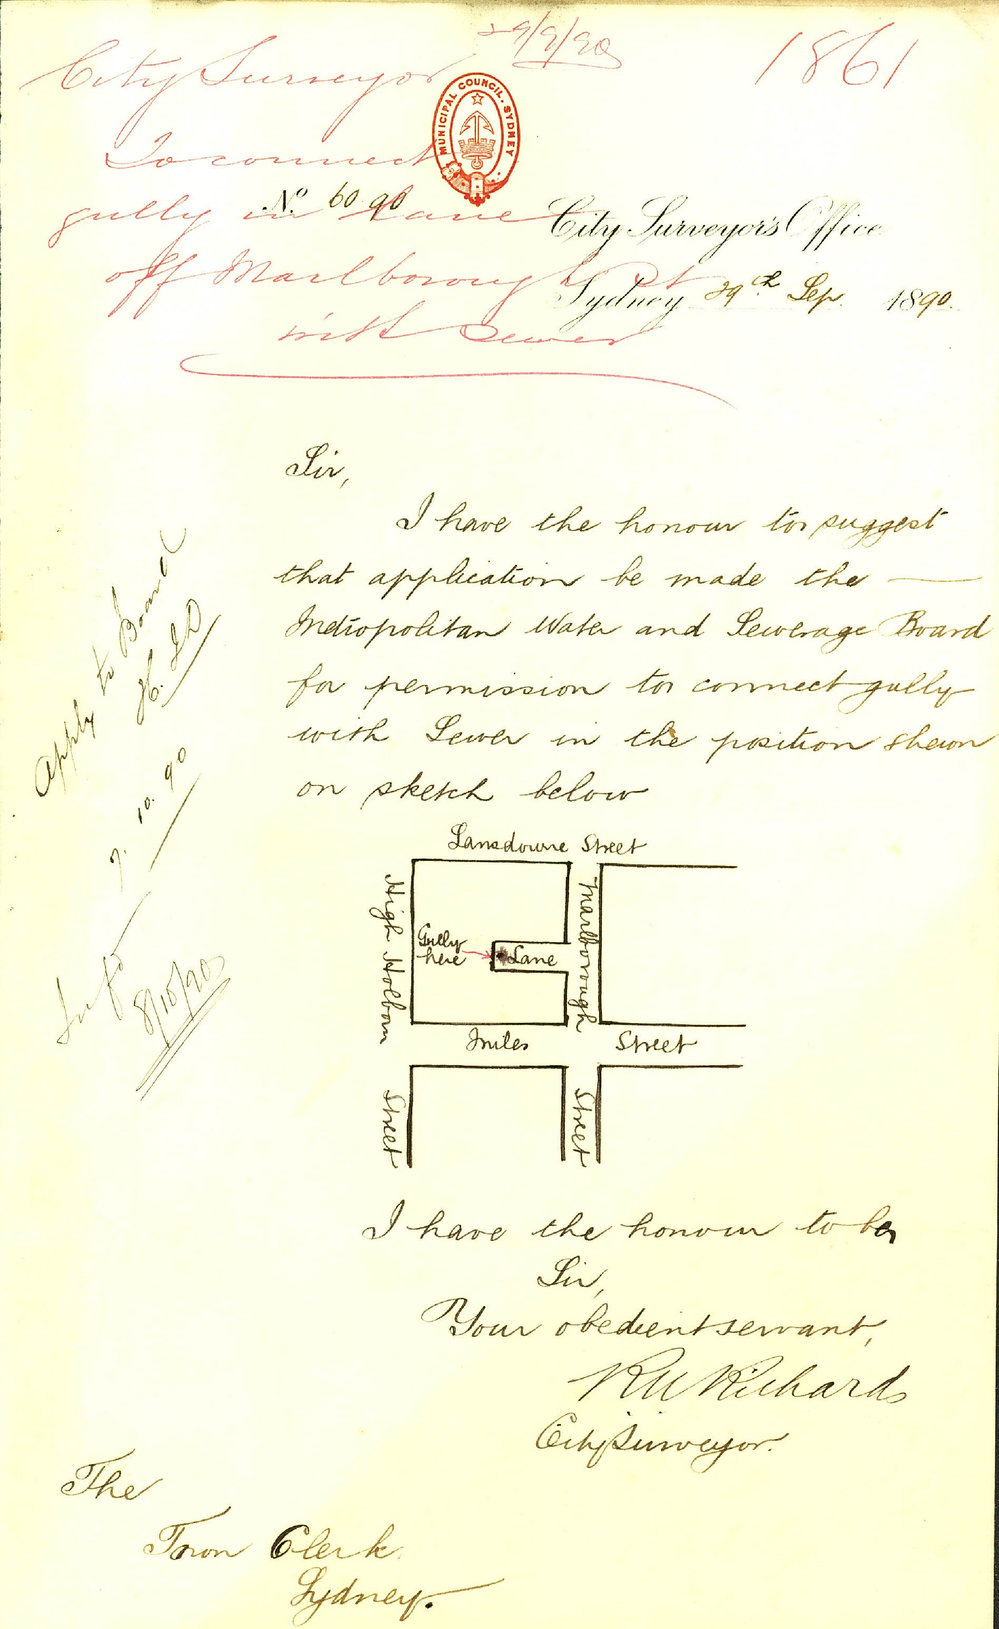 29/9/90
1861
City Surveyor
MUNICIPAL COUNCIL. SYDNEY
To connect
gully in Lane
off Marlborough St
with sewer
No. 60 90
City Surveyor's Office
Sydney 29th Sep. 1890.
Sir,
I have the honour to suggest
that application be made the
Metropolitan Water and Sewerage Board
for permission to connect gully
with Sewer in the position shewn
on sketch below
Apply to Board
7.10.90
8/10/90
Lansdowne Street
High Holborn Street
Marlborough Street
Gully
here
Lane
Miles Street
I have the honour to be
Sir,
Your obedient servant,
RW Richards
City Surveyor.
The
Town Clerk
Sydney.